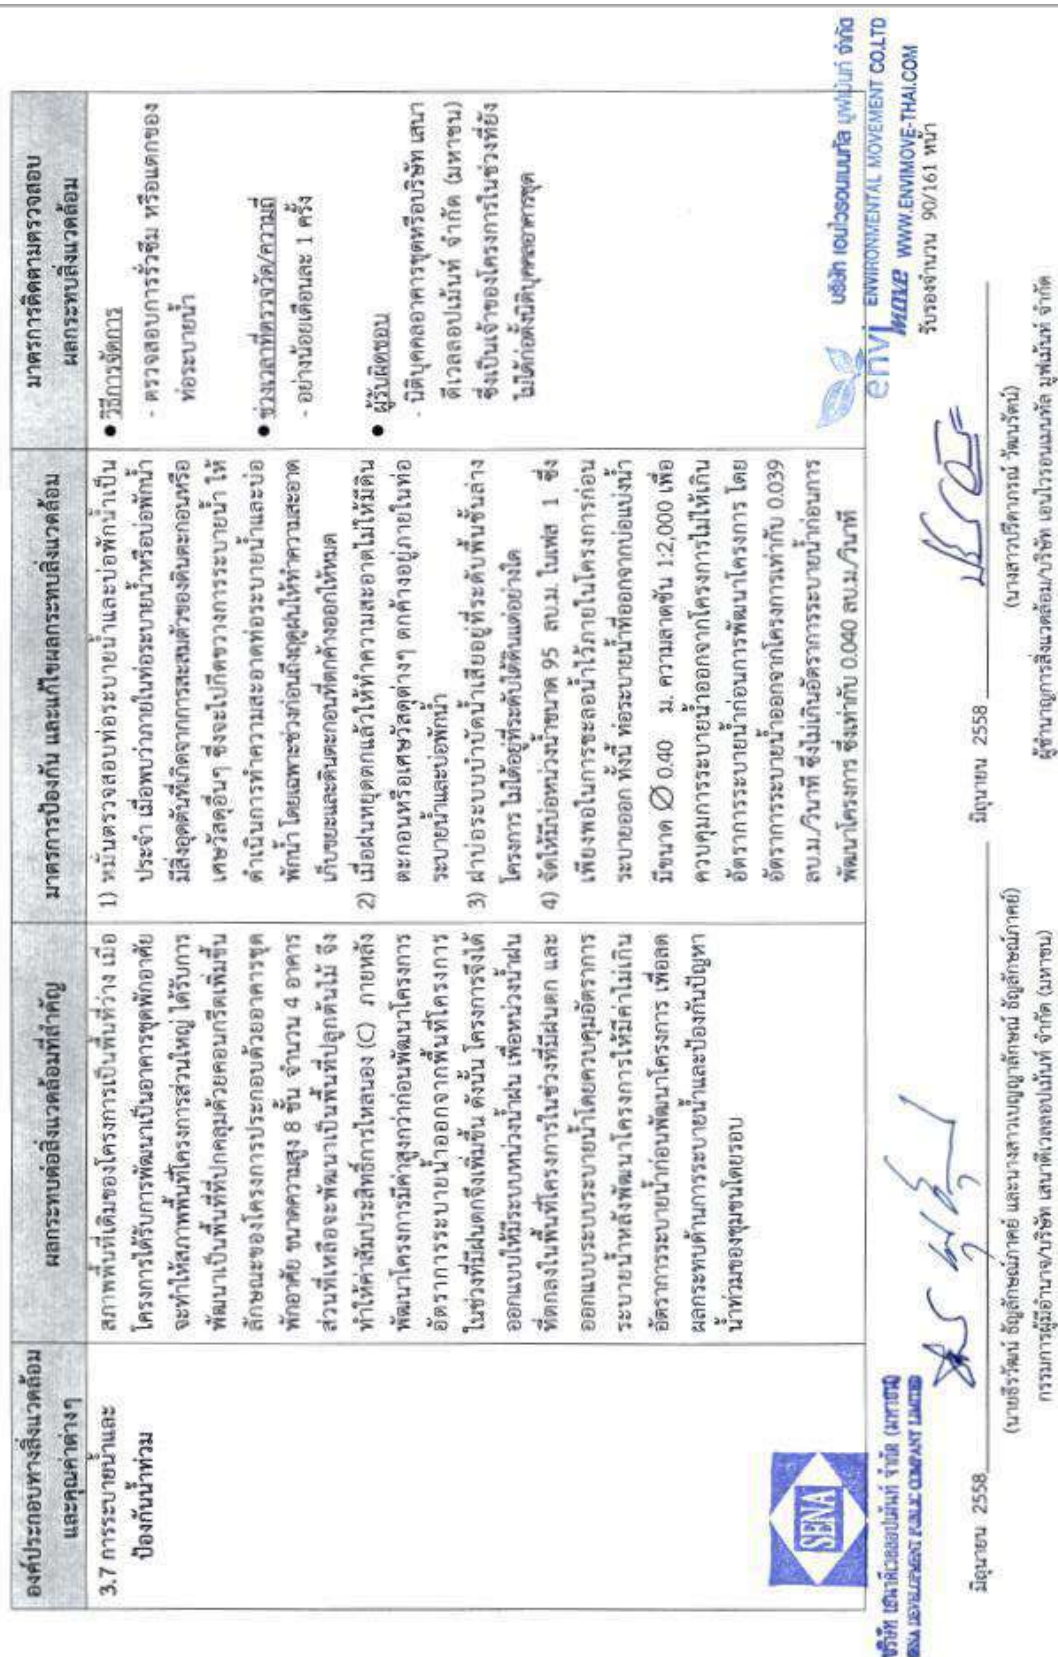 องค์ประกอบทางสิ่งแวดล้อม
และคุณค่าต่างๆ
ผลกระทบต่อสิ่งแวดล้อมที่สำคัญ
มาตรการป้องกัน และแก้ไขผลกระทบสิ่งแวดล้อม
มาตรการติดตามตรวจสอบ
ผลกระทบสิ่งแวดล้อม
3.7 การระบายน้ำและ
ป้องกันน้ำท่วม
สภาพพื้นที่เดิมของโครงการเป็นพื้นที่ว่าง เมื่อ
โครงการได้รับการพัฒนาเป็นอาคารชุดพักอาศัย
จะทำให้สภาพพื้นที่โครงการส่วนใหญ่ ได้รับการ
พัฒนาเป็นพื้นที่ที่ปกคลุมด้วยคอนกรีตเพิ่มขึ้น
ลักษณะของโครงการประกอบด้วยอาคารชุด
พักอาศัย ขนาดความสูง 8 ชั้น จำนวน 4 อาคาร
ส่วนที่เหลือจะพัฒนาเป็นพื้นที่ปลูกต้นไม้ จึง
ทำให้ค่าสัมประสิทธิ์การไหลนอง (C) ภายหลัง
พัฒนาโครงการมีค่าสูงกว่าก่อนพัฒนาโครงการ
อัตราการระบายน้ำออกจากพื้นที่โครงการ
ในช่วงที่มีฝนตกจึงเพิ่มขึ้น ดังนั้น โครงการจึงได้
ออกแบบให้มีระบบหน่วงน้ำฝน เพื่อหน่วงน้ำฝน
ที่ตกลงในพื้นที่โครงการในช่วงที่มีฝนตก และ
ออกแบบระบบระบายน้ำโดยควบคุมอัตราการ
ระบายน้ำหลังพัฒนาโครงการให้มีค่าไม่เกิน
อัตราการระบายน้ำก่อนพัฒนาโครงการ เพื่อลด
ผลกระทบด้านการระบายน้ำและป้องกันปัญหา
น้ำท่วมของชุมชนโดยรอบ
1) หมั่นตรวจสอบท่อระบายน้ำและบ่อพักน้ำเป็น
ประจำ เมื่อพบว่าภายในท่อระบายน้ำหรือบ่อพักน้ำ
มีสิ่งอุดตันที่เกิดจากการสะสมตัวของดินตะกอนหรือ
เศษวัสดุอื่นๆ ซึ่งจะไปกีดขวางการระบายน้ำ ให้
ดำเนินการทำความสะอาดท่อระบายน้ำและบ่อ
พักน้ำ โดยเฉพาะช่วงก่อนถึงฤดูฝนให้ทำความสะอาด
เก็บขยะและดินตะกอนที่ตกค้างออกให้หมด
2) เมื่อฝนหยุดตกแล้วให้ทำความสะอาดไม่ให้มีดิน
ตะกอนหรือเศษวัสดุต่างๆ ตกค้างอยู่ภายในท่อ
ระบายน้ำและบ่อพักน้ำ
3) ฝาบ่อระบบบำบัดน้ำเสียอยู่ที่ระดับพื้นชั้นล่าง
โครงการ ไม่ได้อยู่ที่ระดับใต้ดินแต่อย่างใด
4) จัดให้มีบ่อหน่วงน้ำขนาด 95 ลบ.ม. ในเฟส 1 ซึ่ง
เพียงพอในการชะลอน้ำไว้ภายในโครงการก่อน
ระบายออก ทั้งนี้ ท่อระบายน้ำที่ออกจากบ่อแบ่งน้ำ
มีขนาด ∅ 0.40 ม. ความลาดชัน 1:2,000 เพื่อ
ควบคุมการระบายน้ำออกจากโครงการไม่ให้เกิน
อัตราการระบายน้ำก่อนการพัฒนาโครงการ โดย
อัตราการระบายน้ำออกจากโครงการเท่ากับ 0.039
ลบ.ม./วินาที ซึ่งไม่เกินอัตราการระบายน้ำก่อนการ
พัฒนาโครงการ ซึ่งเท่ากับ 0.040 ลบ.ม./วินาที
● วิธีการจัดการ
- ตรวจสอบการรั่วซึม หรือแตกของ
ท่อระบายน้ำ
● ช่วงเวลาที่ตรวจวัด/ความถี่
- อย่างน้อยเดือนละ 1 ครั้ง
● ผู้รับผิดชอบ
- นิติบุคคลอาคารชุดหรือบริษัท เสนา
ดีเวลลอปเม้นท์ จำกัด (มหาชน)
ซึ่งเป็นเจ้าของโครงการในช่วงที่ยัง
ไม่ได้ก่อตั้งนิติบุคคลอาคารชุด
SENA
บริษัท เสนาดีเวลลอปเม้นท์ จำกัด (มหาชน)
SENA DEVELOPMENT PUBLIC COMPANY LIMITED
มิถุนายน 2558
(นายธีรวัฒน์ ธัญลักษณ์ภาคย์ และนางสาวเบญญาลักษณ์ ธัญลักษณ์ภาคย์)
กรรมการผู้มีอำนาจ/บริษัท เสนาดีเวลลอปเม้นท์ จำกัด (มหาชน)
มิถุนายน 2558
(นางสาวปรีดาภรณ์ วัฒนรัตน์)
ผู้ชำนาญการสิ่งแวดล้อม/บริษัท เอนไวรอนเมนทัล มูฟเม้นท์ จำกัด
envi move
บริษัท เอนไวรอนเมนทัล มูฟเม้นท์ จำกัด
ENVIRONMENTAL MOVEMENT CO.LTD
WWW.ENVIMOVE-THAI.COM
รับรองจำนวน 90/161 หน้า